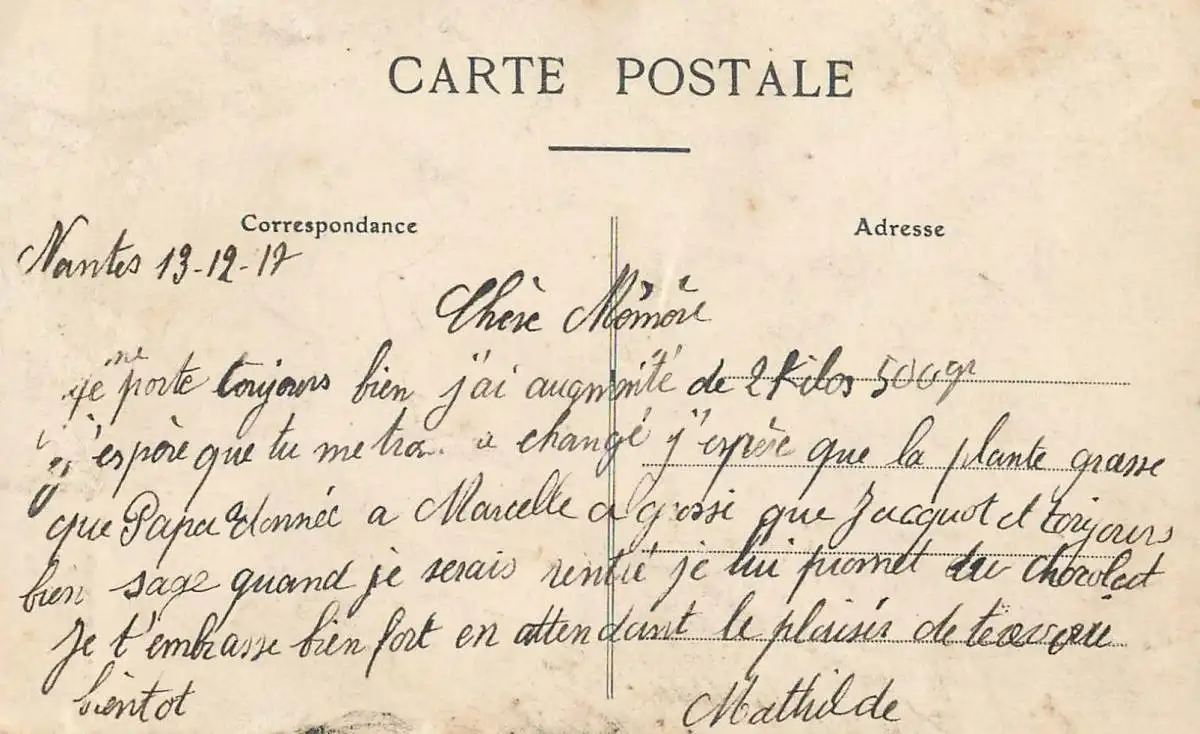 CARTE POSTALE
Correspondance
Adresse
Nantes 13-12-17
Chère Mémère
je me porte toujours bien j'ai augmenté de 2 Kilos 500gr
j'espère que tu me a changé j'espère que la plante grasse
que Papa donnée a Marcelle a grossi que Jacquot et toujours
bien sage quand je serais rentré je lui promet du chocolat
Je t'embrasse bien fort en attendant le plaisir de
bientot
Mathilde